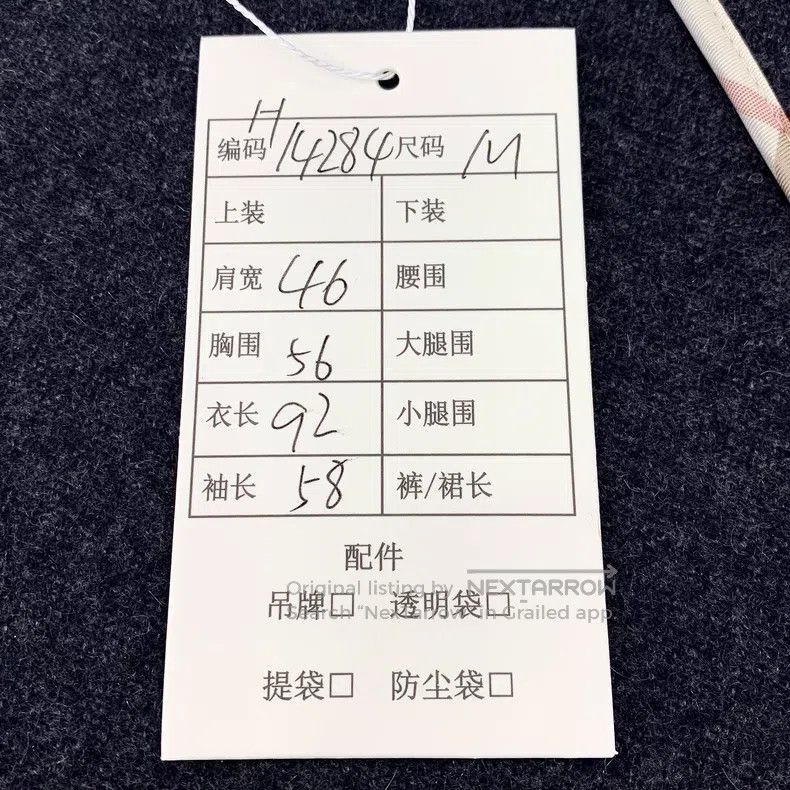 编码 H14284 尺码 M
上装 下装
肩宽 46 腰围
胸围 56 大腿围
衣长 92 小腿围
袖长 58 裤/裙长
配件
Original listing by NEXTARROW
吊牌□ 透明袋□
Search “Nextarrow” in Grailed app
提袋□ 防尘袋□